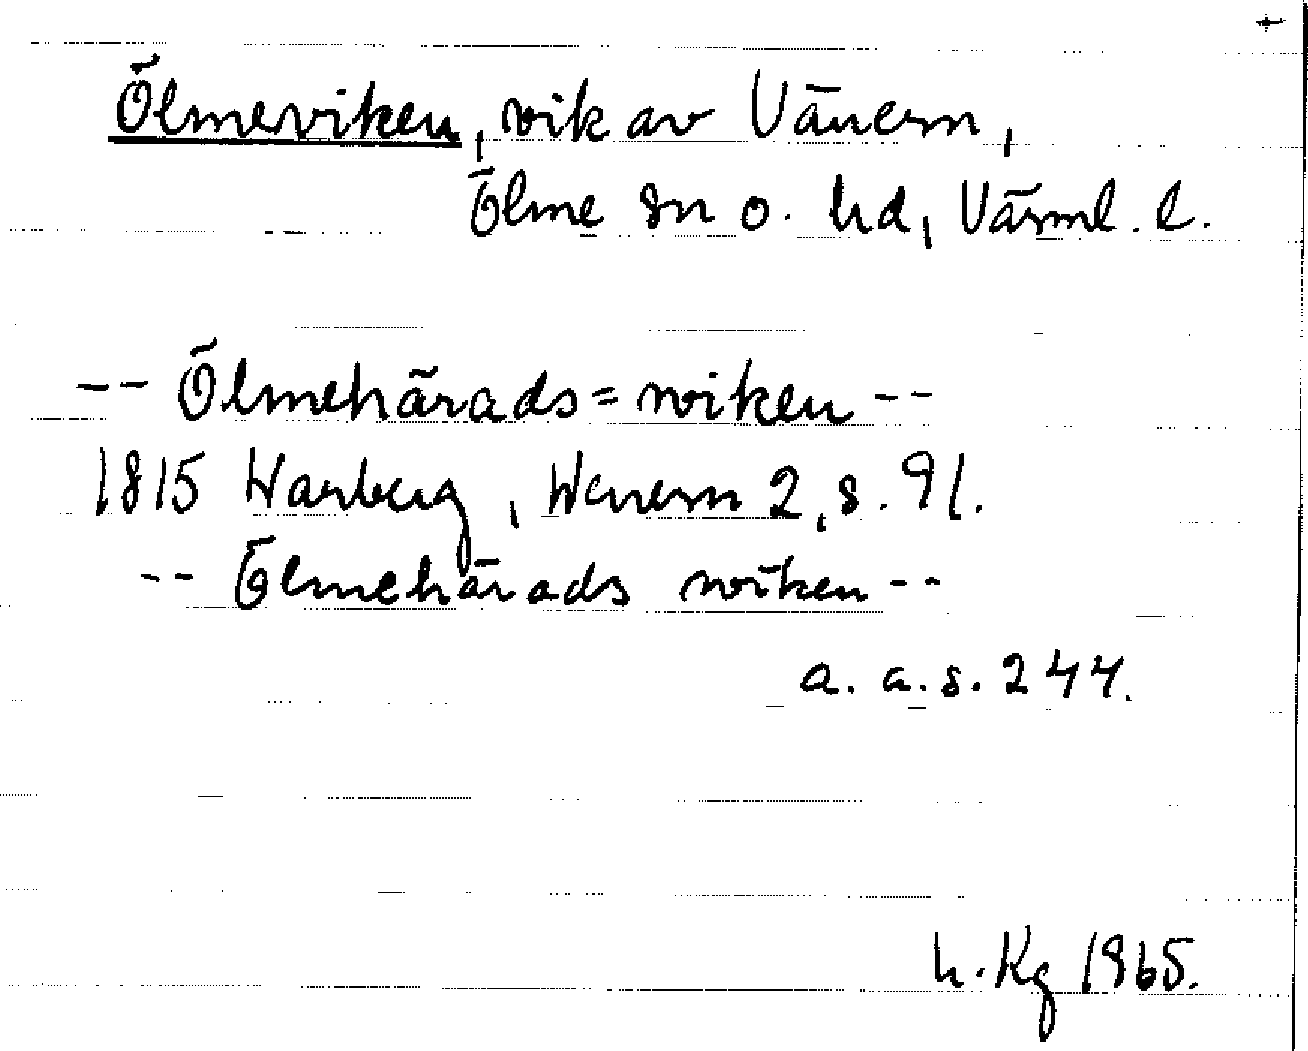 Ölmeviken, vik av Vänern,
Ölme sn o. hd, Värml. l.
-- Ölmehärads=wiken --
1815 Warberg, Wenern 2, s. 91.
-- Ölmehärads wiken --
a. a. s. 244.
h. Kg 1965.